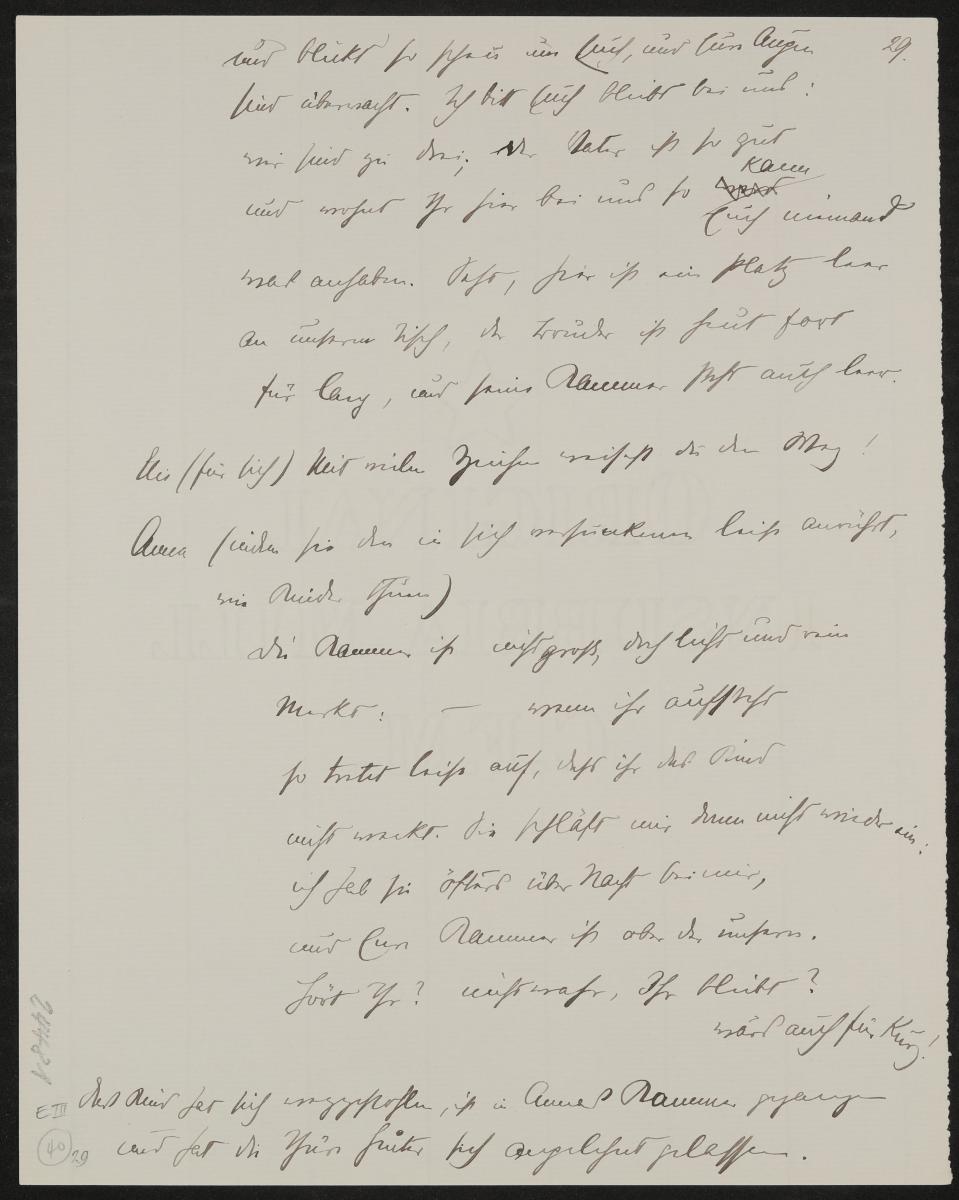 29.
und blickt so scheu um Euch, und Eure Augen
sind überwacht. Ich bitt Euch bleibt bei uns:
wir sind zu drei, der Vater ist so gut
kann
und wohnt Ihr hier bei uns so Euch niemand
was anhaben. Seht, hier ist ein Platz leer
an unserm Tisch, der Bruder ist heut fort
für lang, und seine Kammer steht auch leer.
Elis (für sich) Mit vielen Zeichen weisest du den Weg!
Anna (indem sie den in sich versunkenen leise anrührt,
wie Kinder thuen)
Die Kammer ist nicht groß, doch licht und rein
Merkt: — wenn ihr aufsteht
so tretet leise auf, dass ihr das Kind
nicht weckt. Sie schläft mir denn nicht wieder ein:
ich hab sie öfters über Nacht bei mir,
und Eure Kammer ist ober der unsern.
Hört Ihr? nicht wahr, Ihr bleibt?
wärs auch für Kurz!
Das Kind hat sich weggestohlen, ist in Annas Kammer gegangen
und hat die Thüre hinter sich angelehnt gelassen.
E III
40
29